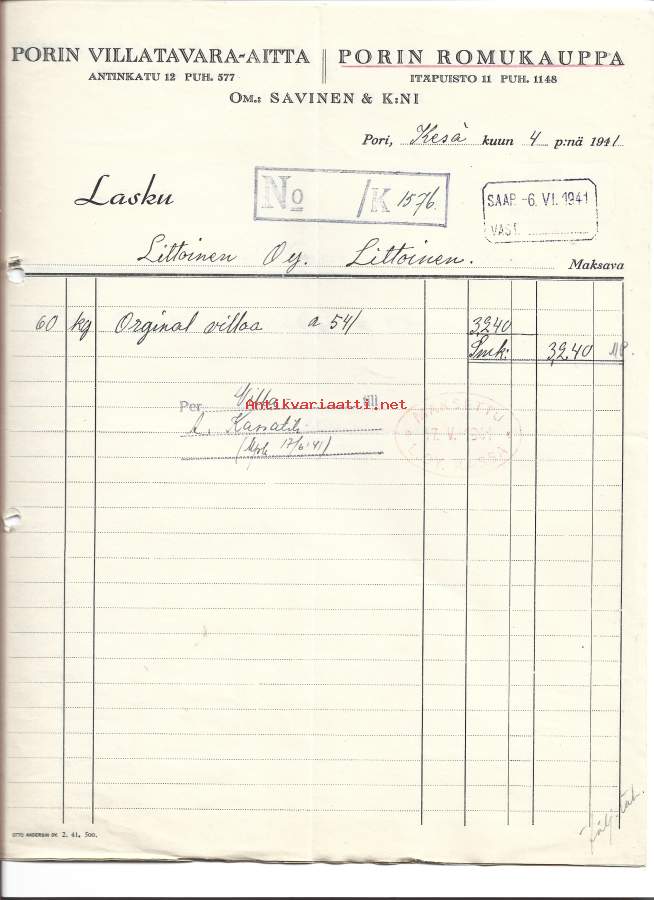 PORIN VILLATAVARA-AITTA
ANTINKATU 12 PUH. 577
PORIN ROMUKAUPPA
ITÄPUISTO 11 PUH. 1148
OM.: SAVINEN & K:NI
Pori, Kesä kuun 4 p:nä 1941
Lasku
No /K 1576.
SAAP. -6. VI. 1941
VAST.
Littoinen Oy. Littoinen. Maksava
60 kg Orginal villaa a 54/ 3240
Smk: 3240
Per Villa
Antikvariaatti.net
A. Kassatili
17/6 41)
MAKSETTU
17. V. 1941
OTTO ANDERSIN OY. 2. 41, 500.